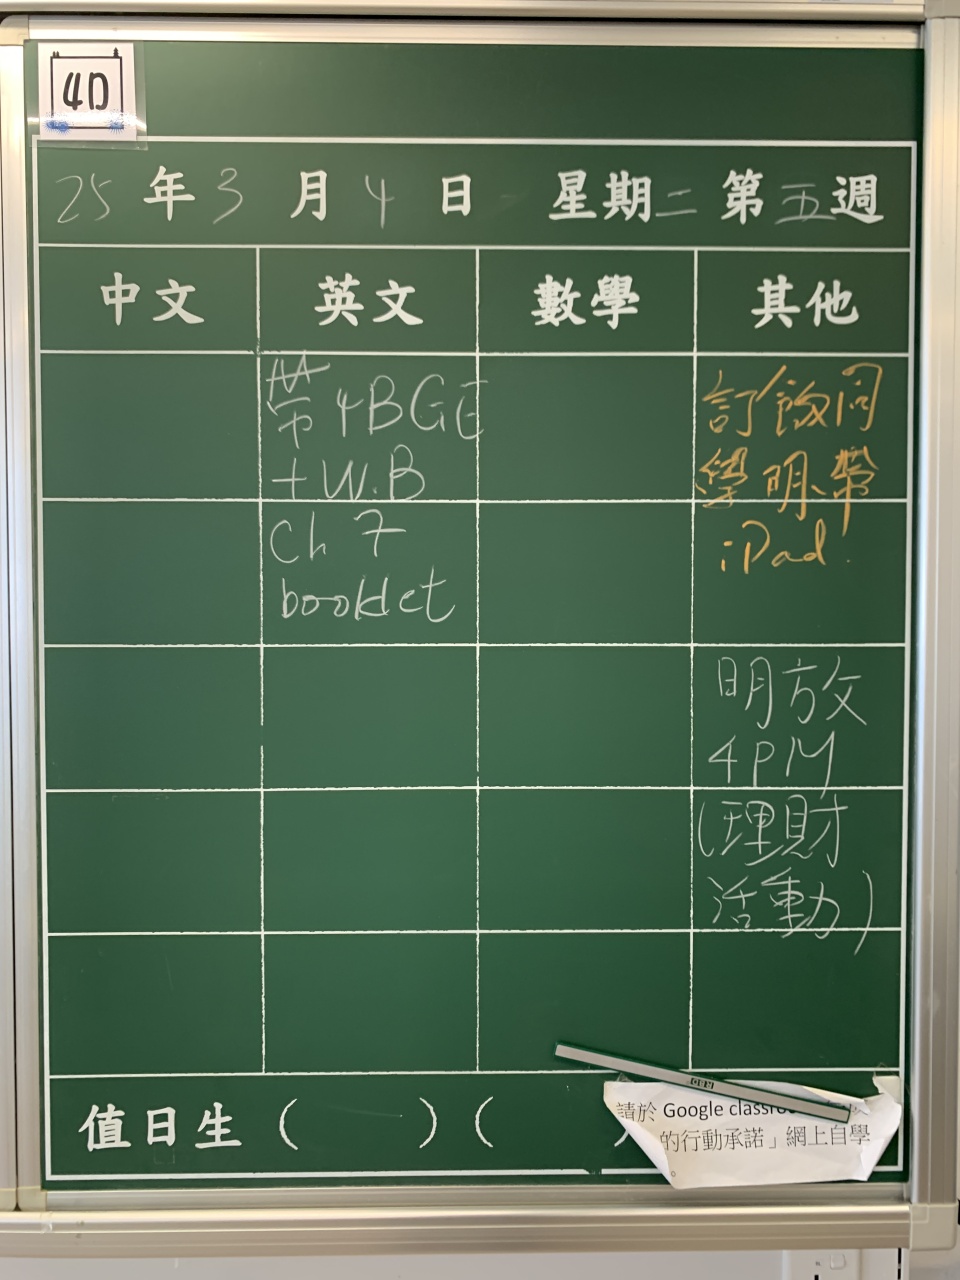 4D
25年3月4日 星期二 第五週
中文 英文 數學 其他
帶4BGE
+W.B
Ch 7
booklet
訂飯同
學明帶
iPad.
明放
4PM
(理財
活動)
值日生 ( ) ( )
請於 Google classro
的行動承諾」網上自學
。